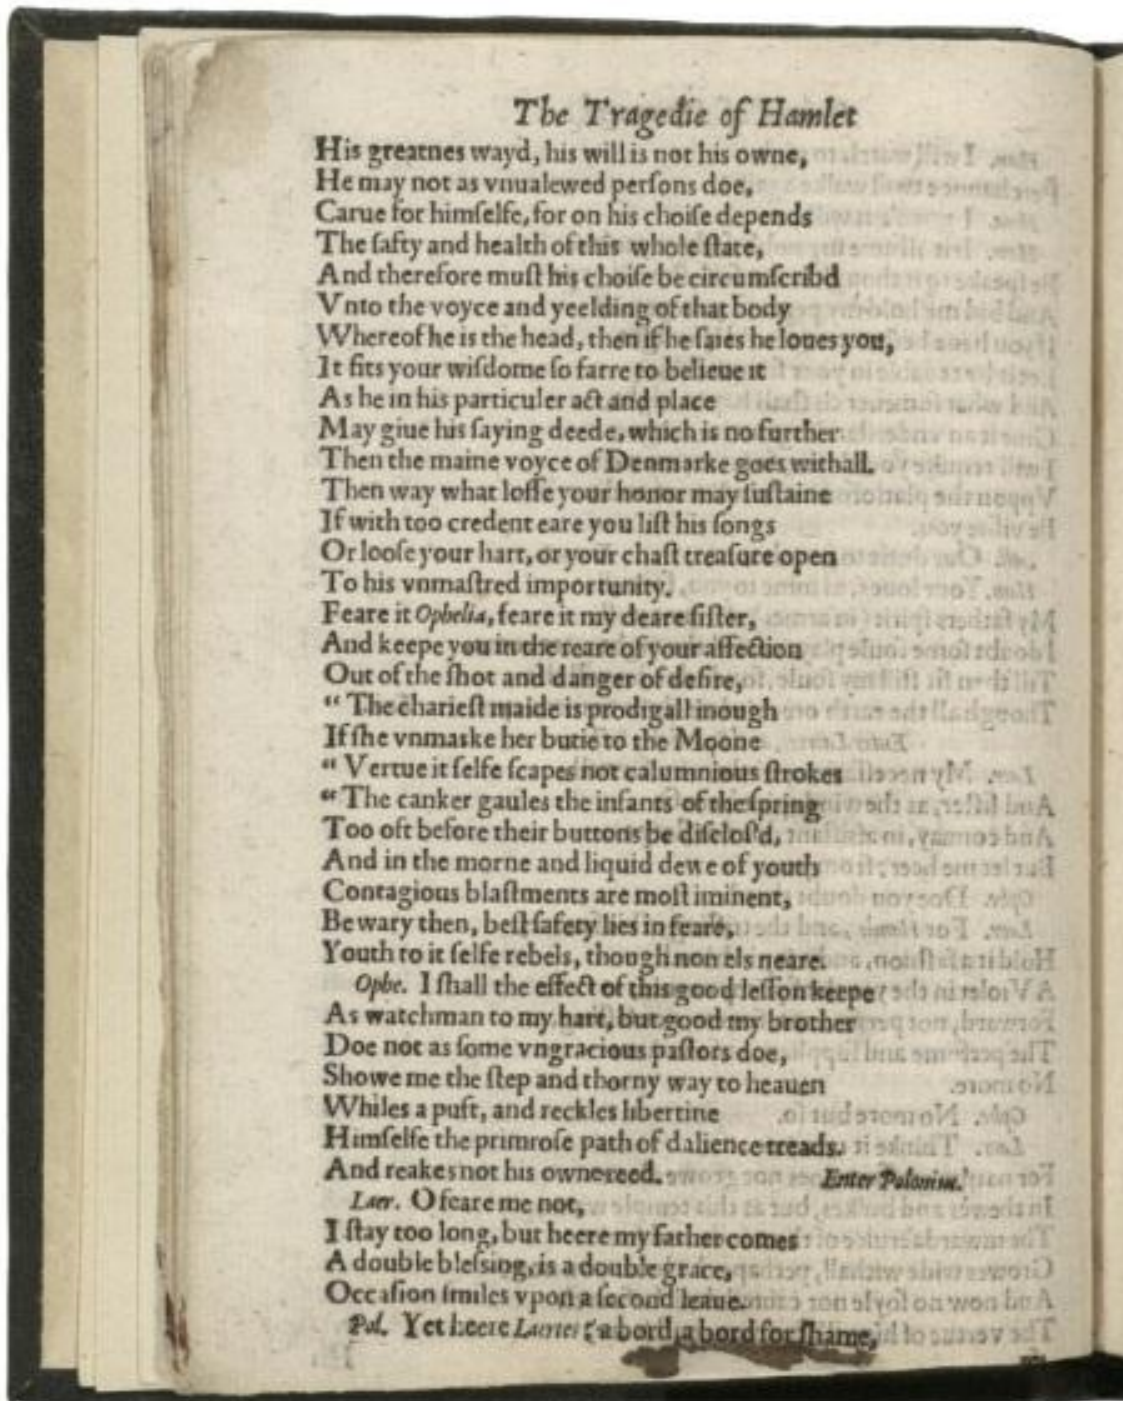 The Tragedie of Hamlet
His greatnes wayd, his will is not his owne,
He may not as vnualewed perſons doe,
Carue for himſelfe, for on his choiſe depends
The ſafty and health of this whole ſtate,
And therefore muſt his choiſe be circumſcribd
Vnto the voyce and yeelding of that body
Whereof he is the head, then if he ſaies he loues you,
It fits your wiſdome ſo farre to belieue it
As he in his particuler act and place
May giue his ſaying deede, which is no further
Then the maine voyce of Denmarke goes withall.
Then way what loſſe your honor may ſuſtaine
If with too credent eare you liſt his ſongs
Or looſe your hart, or your chaſt treaſure open
To his vnmaſtred importunity.
Feare it Ophelia, feare it my deare ſiſter,
And keepe you in the reare of your affection
Out of the ſhot and danger of deſire,
“ The charieſt maide is prodigall inough
If ſhe vnmaske her butie to the Moone
“ Vertue it ſelfe ſcapes not calumnious ſtrokes
“ The canker gaules the infants of the ſpring
Too oft before their buttons be diſclos'd,
And in the morne and liquid dewe of youth
Contagious blaſtments are moſt iminent,
Be wary then, beſt ſafety lies in feare,
Youth to it ſelfe rebels, though non els neare.
Ophe. I ſhall the effect of this good leſſon keepe
As watchman to my hart, but good my brother
Doe not as ſome vngracious paſtors doe,
Showe me the ſtep and thorny way to heauen
Whiles a puft, and reckles libertine
Himſelfe the primroſe path of dalience treads.
And reakes not his owne reed. Enter Polonius.
Laer. O feare me not,
I ſtay too long, but heere my father comes
A double bleſsing, is a double grace,
Occaſion ſmiles vpon a ſecond leaue.
Pol. Yet heere Laertes? a bord, a bord for ſhame,